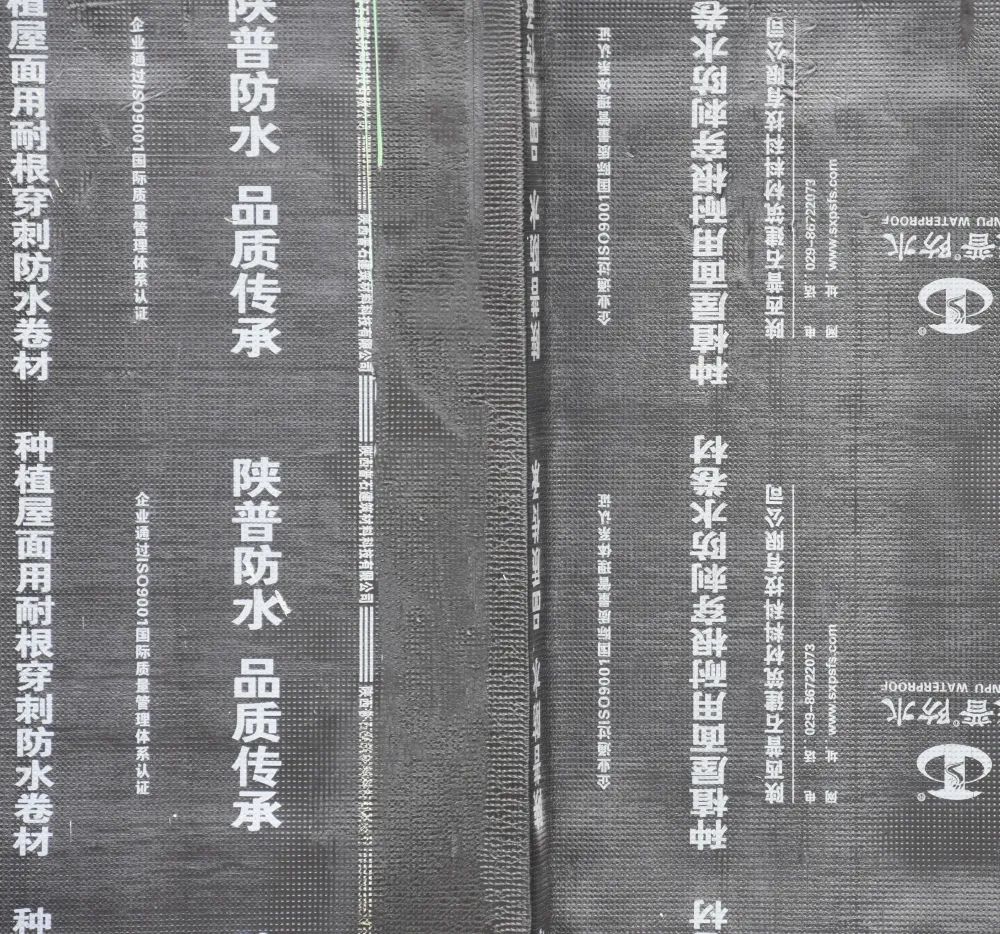 植屋面用耐根穿刺防水卷材
种植屋面用耐根穿刺防水卷材
种
企业通过ISO9001国际质量管理体系认证
企业通过ISO9001国际质量管理体系认证
陕普防水 品质传承
陕普防水 品质传承
陕西普石建筑材料科技有限公司
陕西普石建筑材料科技有限公司
陕西普石
防水
品质传承
防水
企业通过ISO9001国际质量管理体系认证
企业通过ISO9001国际质量管理体系认证
种植屋面用耐根穿刺防水卷
种植屋面用耐根穿刺防水卷材
材
陕西普石建筑材料科技有限公司
电 话 029-86722073
网 址 www.sxpsfs.com
陕西普石建筑材料科技有限公司
电 话 029-86722073
网 址 www.sxpsfs.com
普®防水
NPU WATERPROOF
®
普®防水
NPU WATERPROOF
®